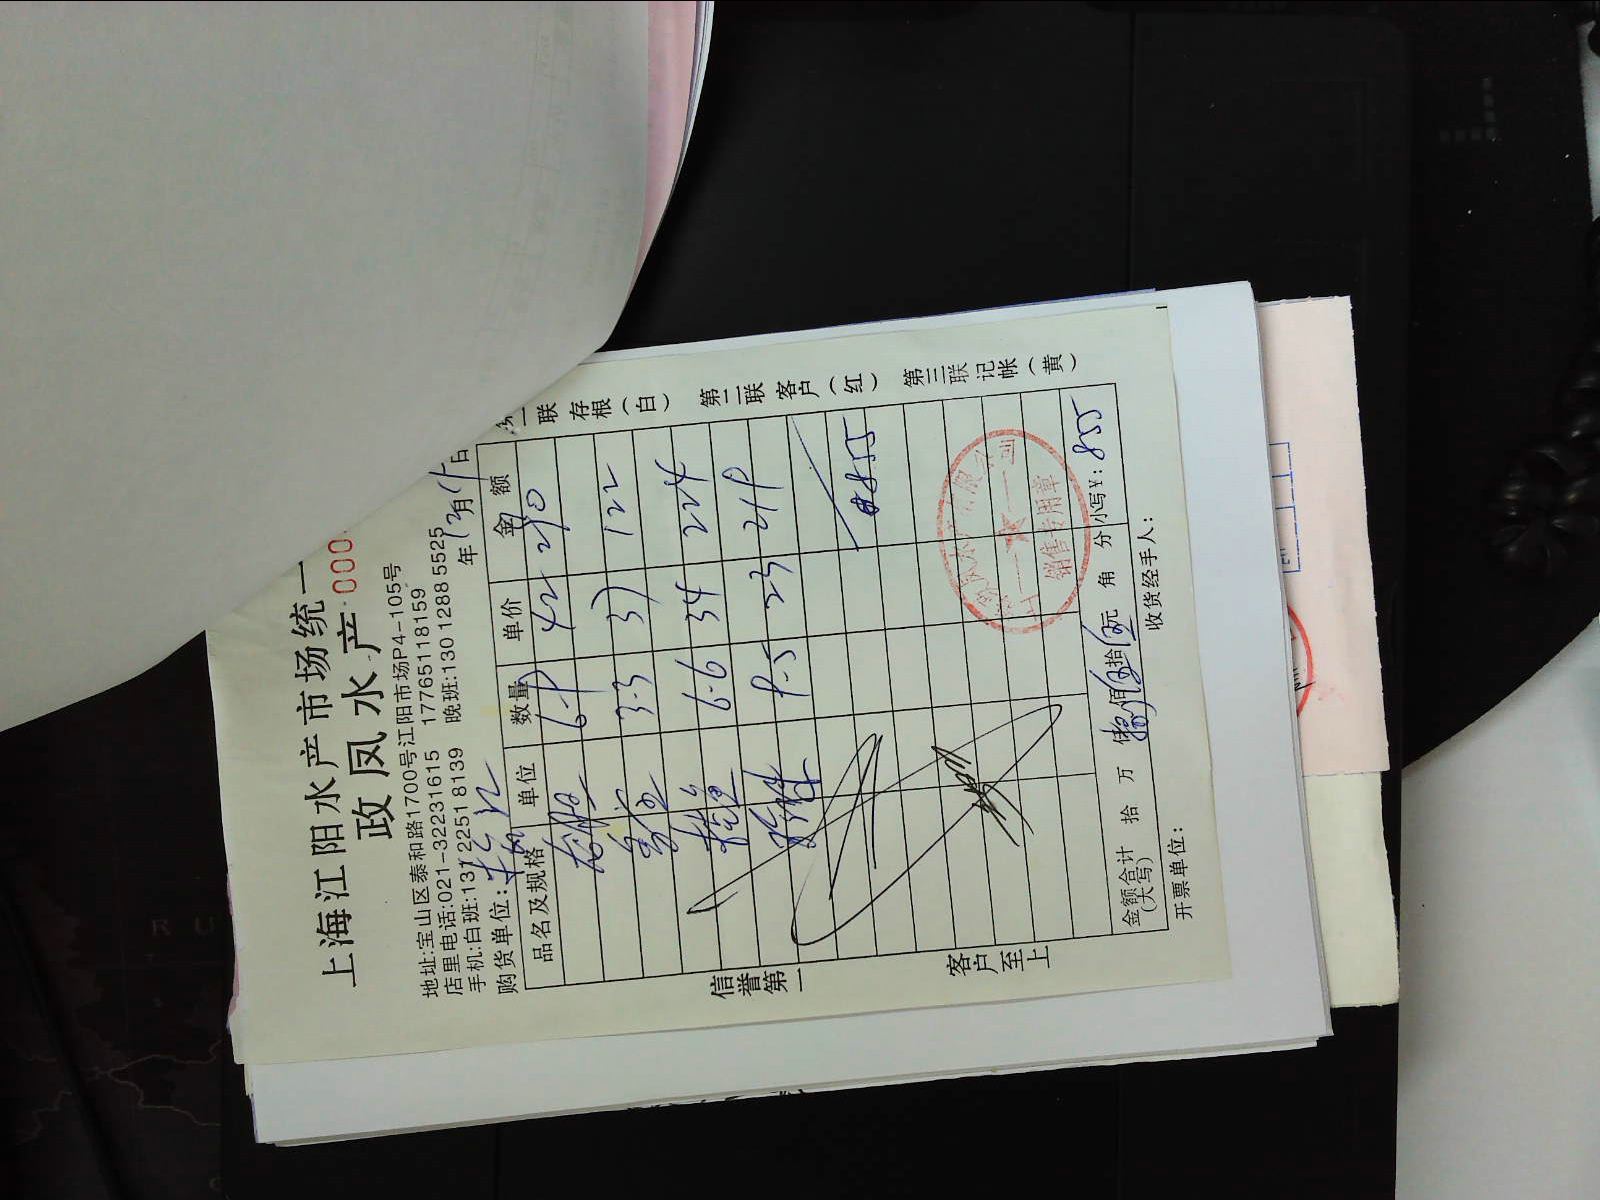 上海江阳水产市场统一
政凤水产 000
地址:宝山区泰和路1700号江阳市场P4-105号
店里电话:021-32231615 17765118159
手机:白班:131 2251 8139 晚班:130 1288 5525
购货单位: 年12月 日
品名及规格 单位 数量 单价 金额
6.9 42 290
3.3 37 122
6.6 34 224
9.5 23 219
#855
金额合计(大写) 拾 万 仟 捌佰伍拾伍元 角 分 小写¥: 855
开票单位: 收货经手人:
信誉第一
客户至上
一联存根(白)
第二联客户(红)
第三联记帐(黄)
销售专用章